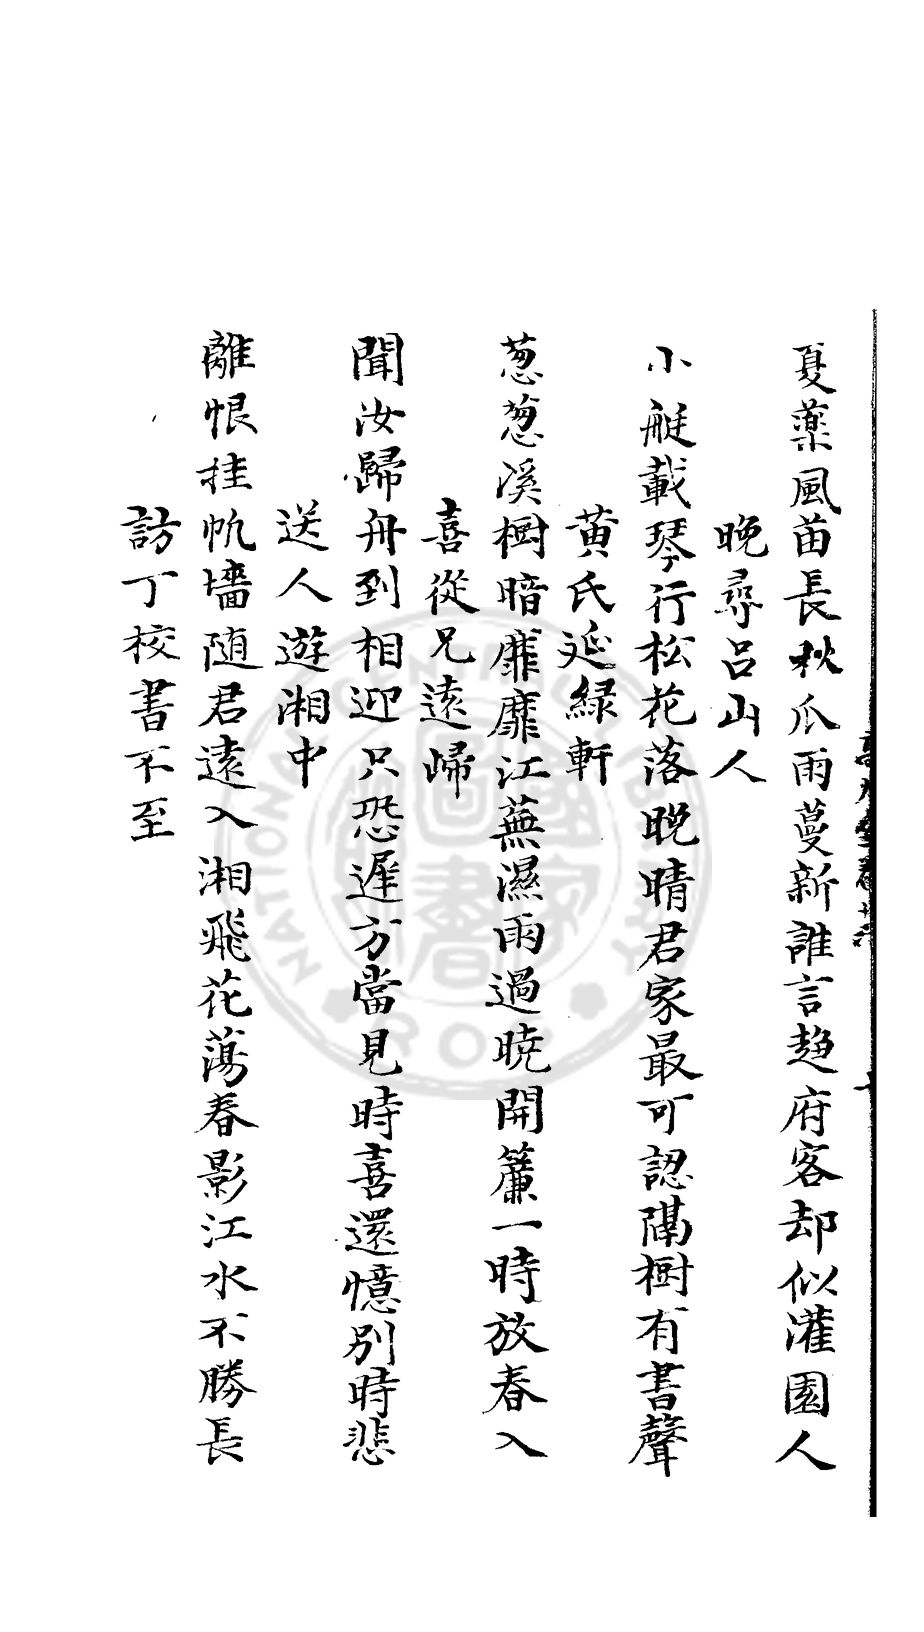 夏藥風苗長秋瓜雨蔓新誰言趙府客却似灌園人
晚尋呂山人
小艇載琴行松花落晚晴君家最可認隔樹有書聲
黄氏延緑軒
葱葱溪樹暗靡靡江蕪濕雨過曉開簾一時放春入
喜從兄遠歸
聞汝歸舟到相迎只恐遲方當見時喜還憶別時悲
送人遊湘中
離恨挂帆墻随君遠入湘飛花蕩春影江水不勝長
訪丁校書不至
NATIONAL CENTRAL LIBRARY
ROC
國家圖書館